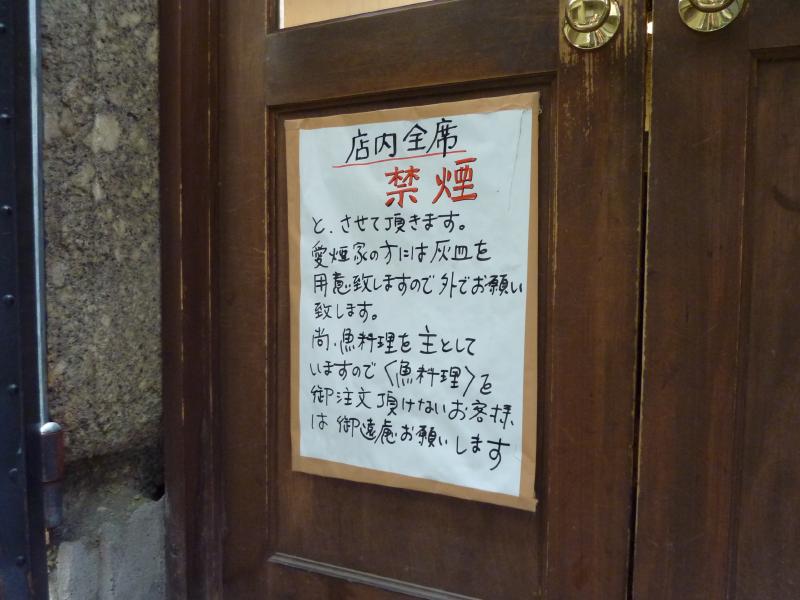 店内全席
禁煙
と、させて頂きます。
愛煙家の方には灰皿を
用意致しますので外でお願い
致します。
尚、魚料理を主として
いますので〈魚料理〉を
御注文頂けないお客様
は御遠慮お願いします